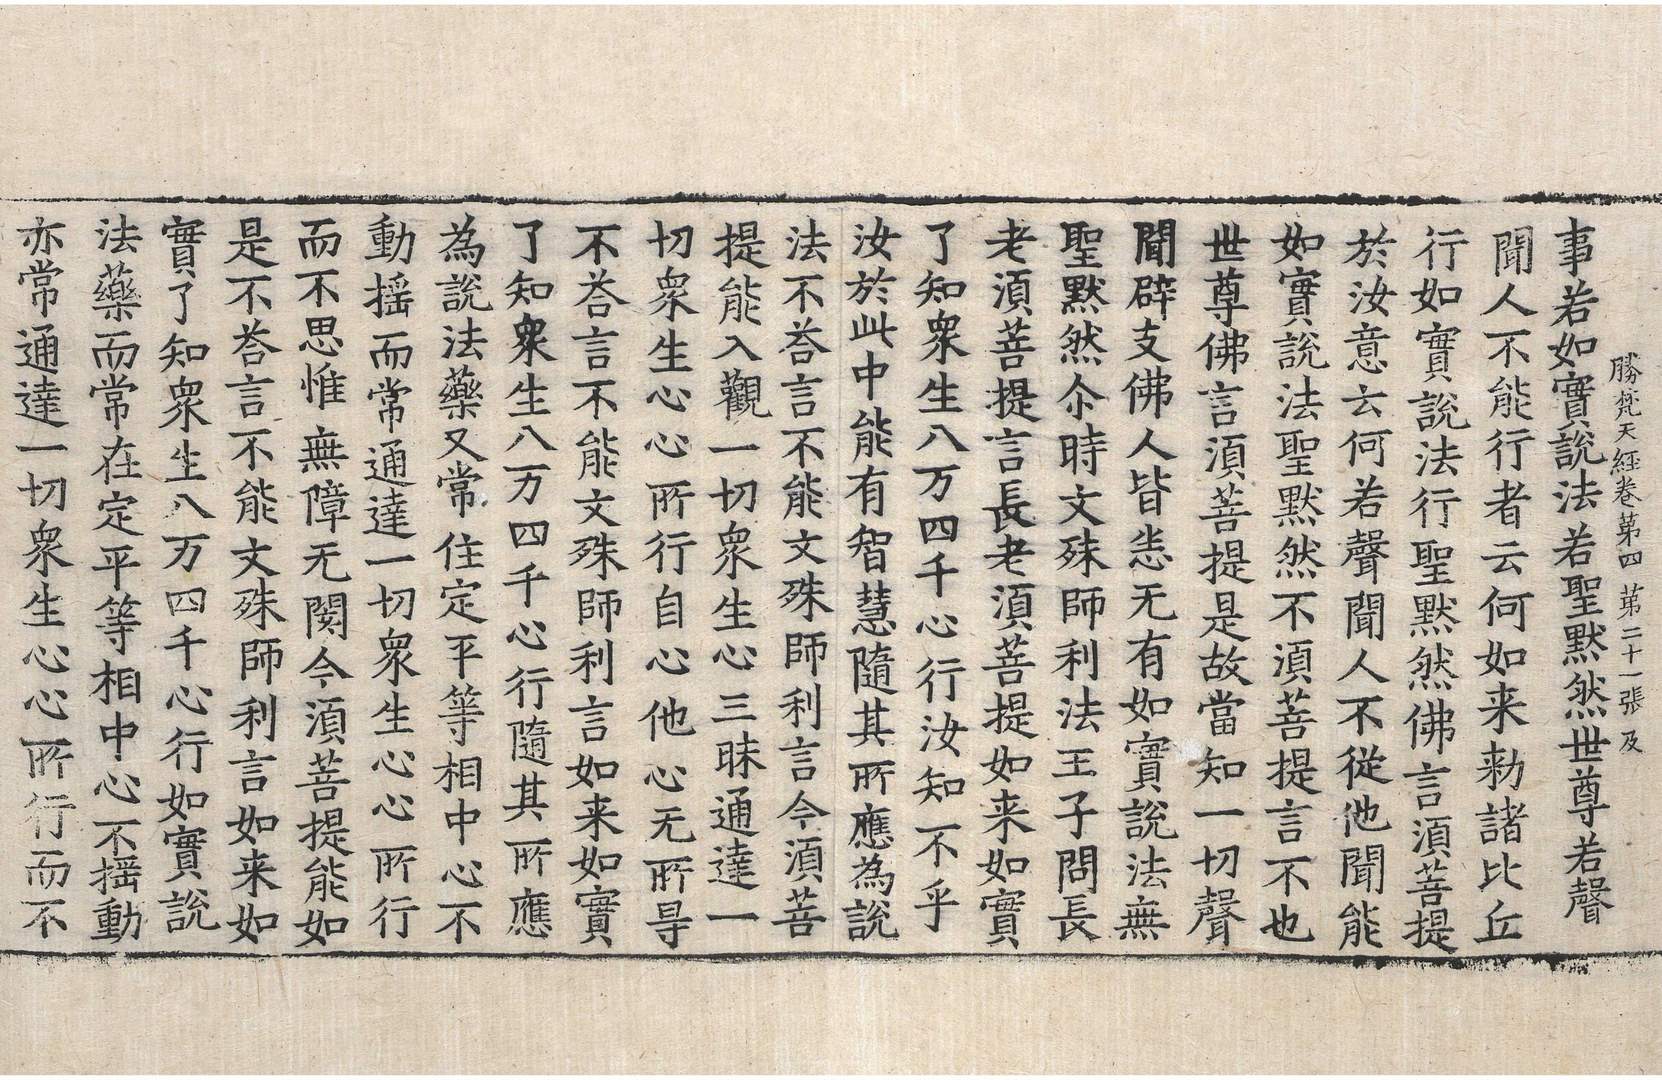 勝梵天經卷第四 第二十一張 及
事若如實說法若聖默然世尊若聲
聞人不能行者云何如来勑諸比丘
行如實說法行聖默然佛言湏菩提
於汝意云何若聲聞人不從他聞能
如實說法聖默然不湏菩提言不也
世尊佛言湏菩提是故當知一切聲
聞辟支佛人皆悉无有如實說法無
聖默然尒時文殊師利法王子問長
老湏菩提言長老湏菩提如来如實
了知衆生八万四千心行汝知不乎
汝於此中能有智慧隨其所應為說
法不荅言不能文殊師利言今湏菩
提能入觀一切衆生心三昧通達一
切衆生心心所行自心他心无所㝵
不荅言不能文殊師利言如来如實
了知衆生八万四千心行隨其所應
為說法藥又常住定平等相中心不
動揺而常通達一切衆生心心所行
而不思惟無障无閡今湏菩提能如
是不荅言不能文殊師利言如来如
實了知衆生八万四千心行如實說
法藥而常在定平等相中心不揺動
亦常通達一切衆生心心所行而不